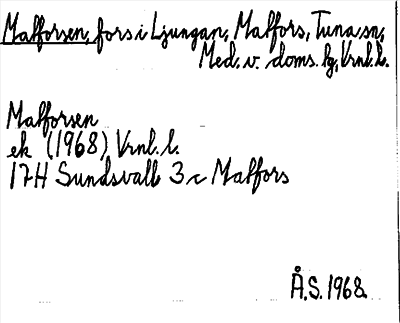 Matforsen, fors i Ljungan, Matfors, Tuna sn,
Med. v. doms. lg, Vrnl. l.
Matforsen
ek (1968) Vrnl. l.
17H Sundsvall 3 c Matfors
Å.S. 1968